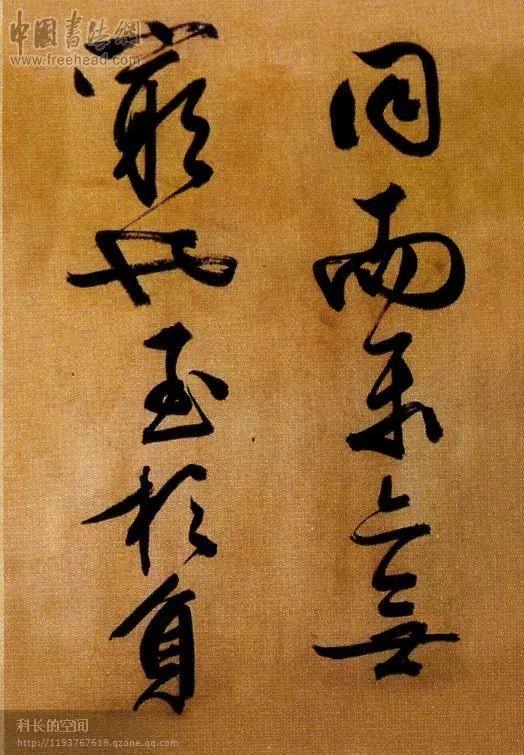 中國書法網
www.freehead.com
同而樂亦無
窮也至於負
科长的空间
http://1193767618.qzone.qq.com